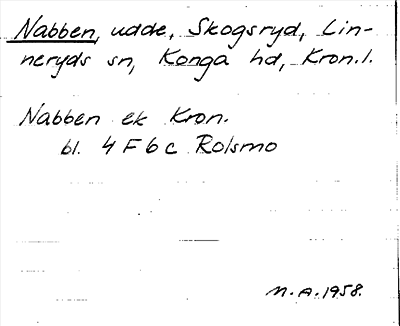 Nabben, udde, Skogsryd, Lin-
neryds sn, Konga hd, Kron.l.
Nabben ek Kron.
bl. 4 F 6 c Rolsmo
M.A.1958.